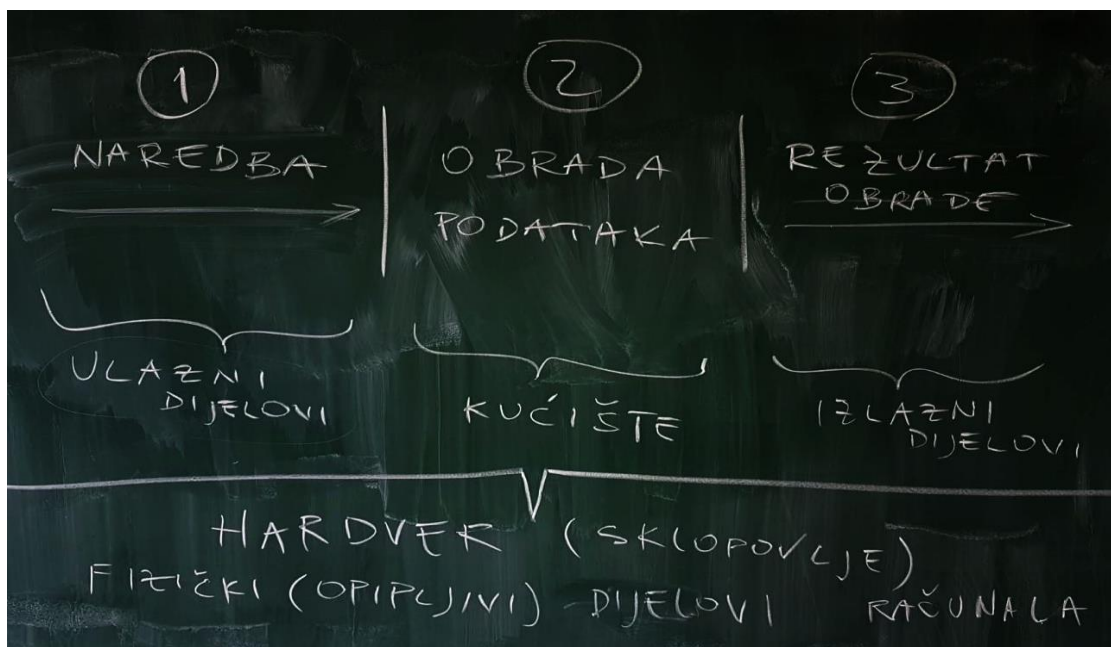 1
NAREDBA
ULAZNI
DIJELOVI
2
OBRADA
PODATAKA
KUĆIŠTE
3
REZULTAT
OBRADE
IZLAZNI
DIJELOVI
HARDVER (SKLOPOVLJE)
FIZIČKI (OPIPLJIVI) DIJELOVI RAČUNALA